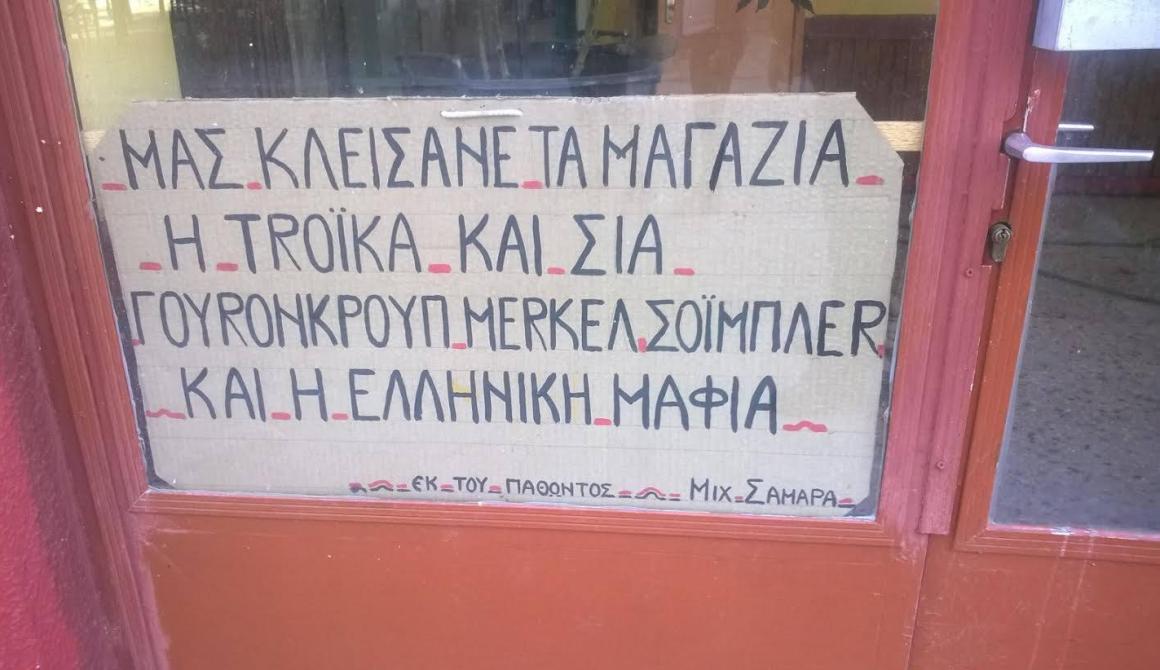 ΜΑΣ ΚΛΕΙΣΑΝΕ ΤΑ ΜΑΓΑΖΙΑ
Η TRΟΪΚΑ ΚΑΙ ΣΙΑ
ΓΟΥRΟΝΚΡΟΥΠ ΜΕRΚΕΛ ΣΟΪΜΠΛΕR
ΚΑΙ Η ΕΛΛΗΝΙΚΗ ΜΑΦΙΑ
ΕΚ ΤΟΥ ΠΑΘΩΝΤΟΣ ΜΙΧ ΣΑΜΑΡΑ